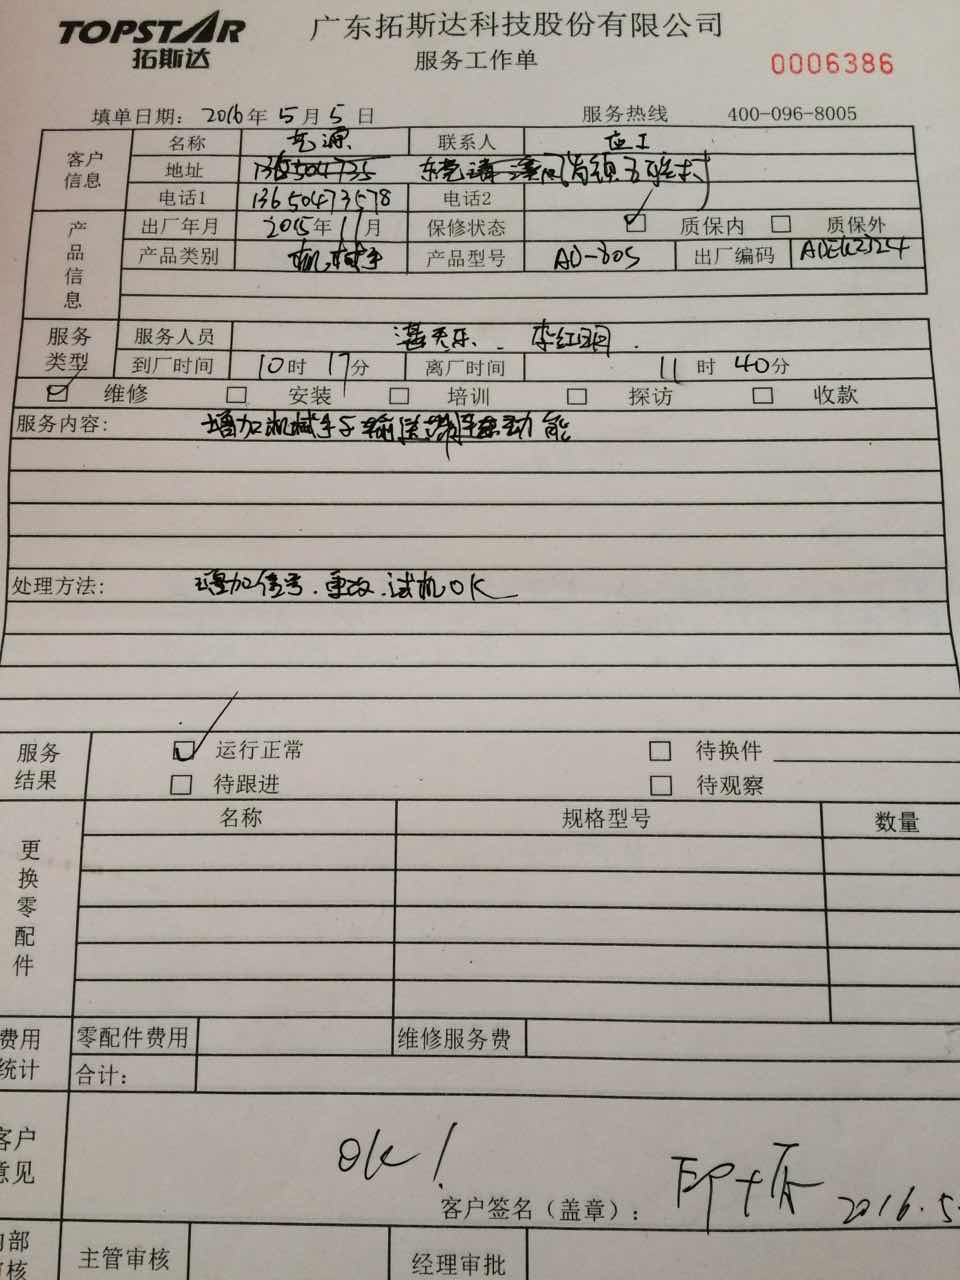 TOPSTAR
拓斯达
广东拓斯达科技股份有限公司
服务工作单
0006386
填单日期: 2016年5月5日 服务热线 400-096-8005
客户信息 名称 联系人
地址
电话1 13650473578 电话2
产品信息 出厂年月 2015年11月 保修状态 质保内 质保外
产品类别 产品型号 AD-80S 出厂编码
服务类型 服务人员
到厂时间 10时17分 离厂时间 11时40分
维修 安装 培训 探访 收款
服务内容: 增加机械手与输送带连动功能
处理方法: 增加信号.更改.试机OK
服务结果 运行正常 待换件
待跟进 待观察
更换零配件 名称 规格型号 数量
费用统计 零配件费用 维修服务费
合计:
客户意见 OK!
客户签名(盖章): 2016.5
内部审核 主管审核 经理审批